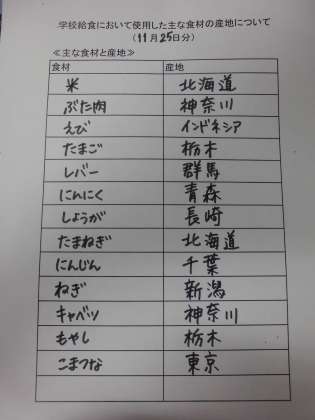 学校給食において使用した主な食材の産地について
（11月25日分）
≪主な食材と産地≫
食材 産地
米 北海道
ぶた肉 神奈川
えび インドネシア
たまご 栃木
レバー 群馬
にんにく 青森
しょうが 長崎
たまねぎ 北海道
にんじん 千葉
ねぎ 新潟
キャベツ 神奈川
もやし 栃木
こまつな 東京